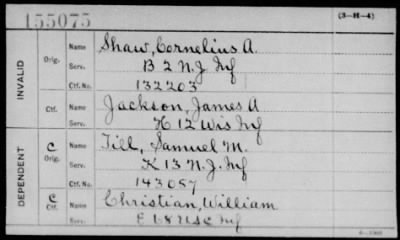 155075 (3-H-4)
INVALID
Orig. Name Shaw, Cornelius A.
Serv. B 2 N.J. Inf
Ctf. No. 132203
Ctf. Name Jackson, James A
Serv. H 12 Wis Inf
DEPENDENT
C Orig. Name Till, Samuel M.
Serv. K 13 N.J. Inf
Ctf. No. 143057
C Ctf. Name Christian, William
Serv. E Inf